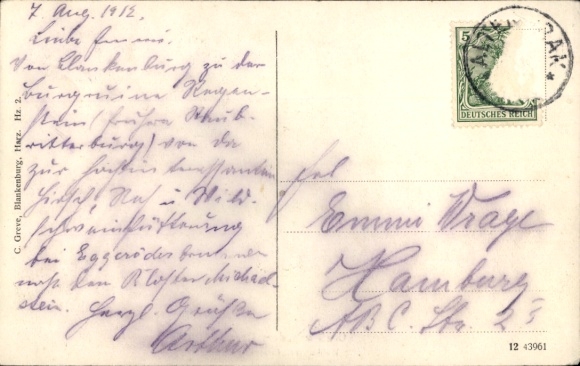 7. Aug. 1912.
Liebe Emmi.
Von Blankenburg zu der
Burgruine Regen-
stein (frühere Raub-
ritterburg) von da
zur hochinteressanten
Hirsch, Reh u Wild-
schweinfütterung
bei Eggeröder brunnen
nach dem Kloster Michael-
stein. Herzl. Grüße
Arthur
C. Greve, Blankenburg, Harz. Hz 2.
5
DEUTSCHES REICH
Frl
Emmi Krage
Hamburg
A.B.C. Str. 2
12 43961